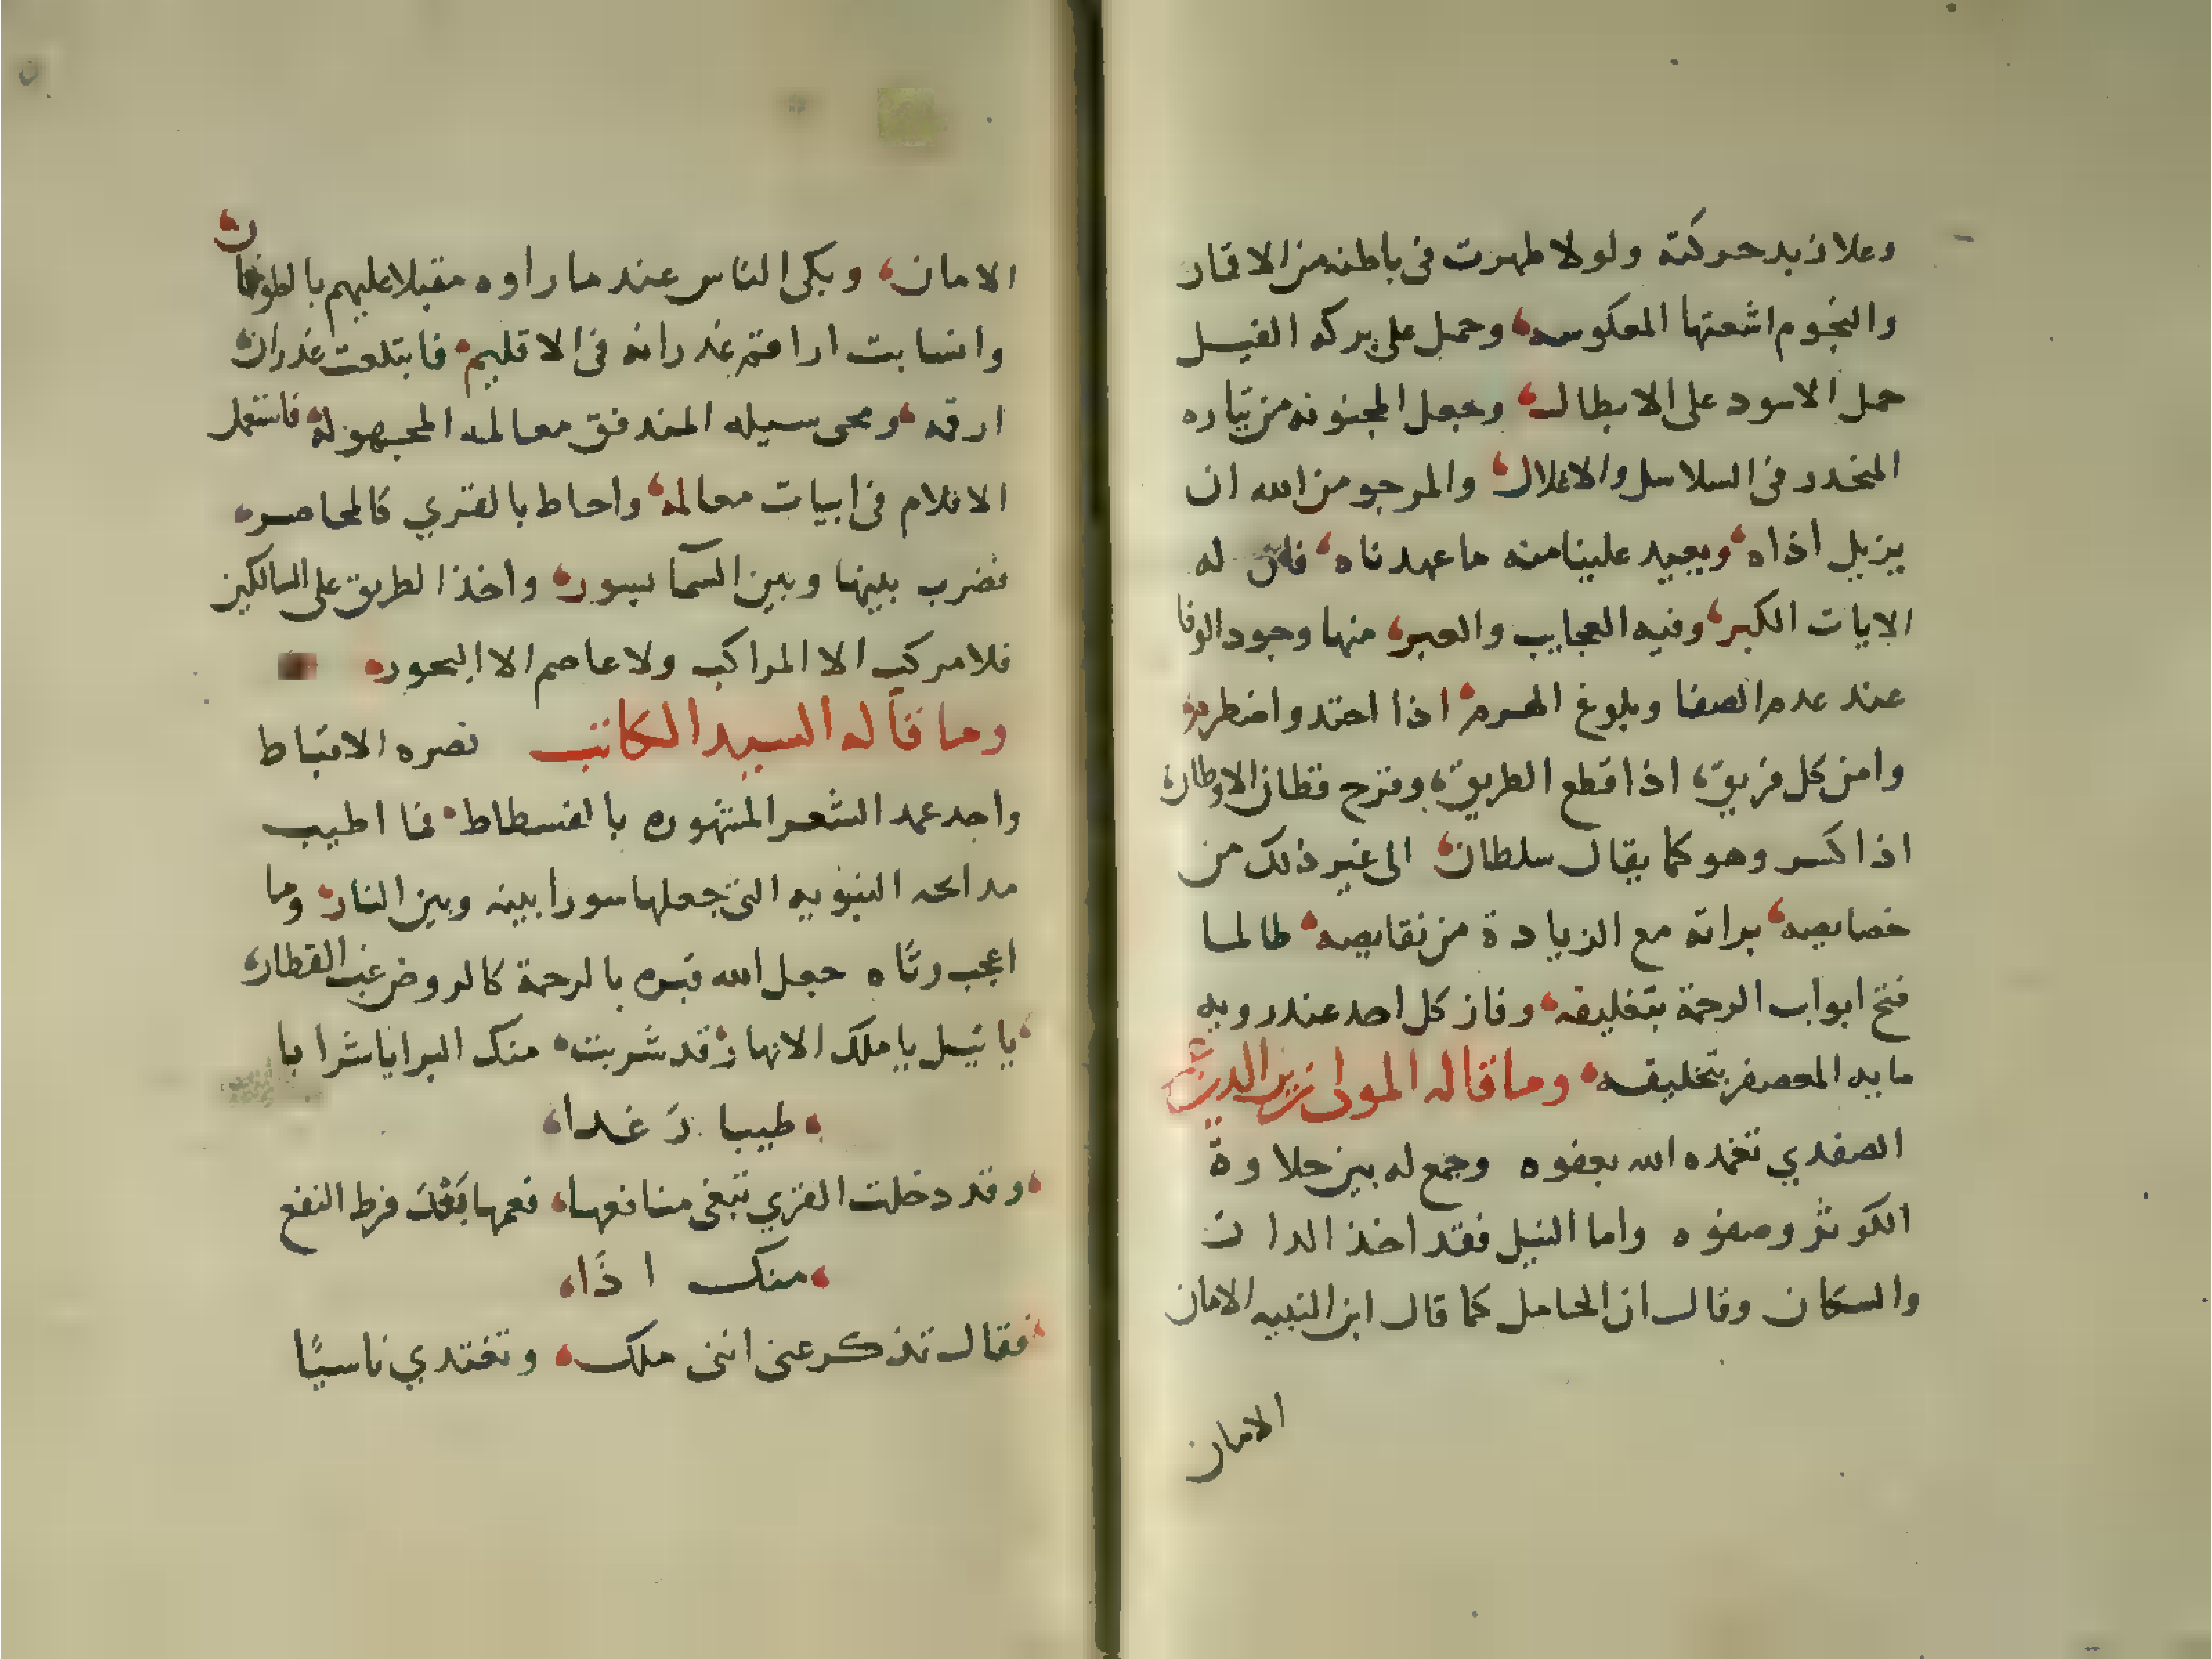 وعلا زبد حركته ولولا ظهرت في باطنه من الاقمار
والنجوم اشعتها المعكوسه وحمل على بركه الفيل
حمل الاسود على الابطال وجعل المجنونه من تياره
المنحدر في السلاسل والاغلال والمرجو من الله ان
يزيل اذاه ويعيد علينا منه ما عهدناه فان له
الايات الكبر وفيه العجايب والعبر منها وجود الوفا
عند عدم الصفا وبلوغ الهرم اذا احتد واضطرم
وامن كل فريق اذا قطع الطريق وفرح قطان الاوطان
اذا كسر وهو كما يقال سلطان الى غير ذلك من
خصايصه براته مع الزيادة من نقايصه طالما
فتح ابواب الرحمة بتغليقه وفاز كل احد عند رويه
مايه المعصفر بتخليقه وما قاله المولى زين الدين
الصفدي تغمده الله بعفوه وجمع له بين حلاوة
الكوثر وصفوه واما النيل فقد اخذ الدان
والسكان وقال ان الحامل كما قال ابن النبيه الامان
الامان
الامان وبكى الناس عند ما راوه مقبلا عليهم بالطوفان
وانسابت اراقم غدرانه في الاقليم فابتلعت غدران
ارقه ومحى سيله المتدفق معالمه المجهولة فاستعمل
الاقلام في ابيات معالمه واحاط بالقري كالمحاصر
فضرب بينها وبين السما بسور واخذ الطريق على السالكين
فلا مركب الا المراكب ولا عاصم الا البحور
وما قاله السيد الكاتب نصره الاقباط
واحد عمد الشعر المشهوره بالفسطاط فما اطيب
مدائحه النبويه التي جعلها سورا بينه وبين النار وما
اعجب رثاه جعل الله قبره بالرحمة كالروض غب القطار
يا نيل يا ملك الانهار قد شربت منك البرايا شرابا
طيبا رغدا
وقد دخلت القري تبغي منافعها فعمها بعد فرط النفع
منك اذا
فقال تذكر عني انني ملك وتغتدي ناسيا